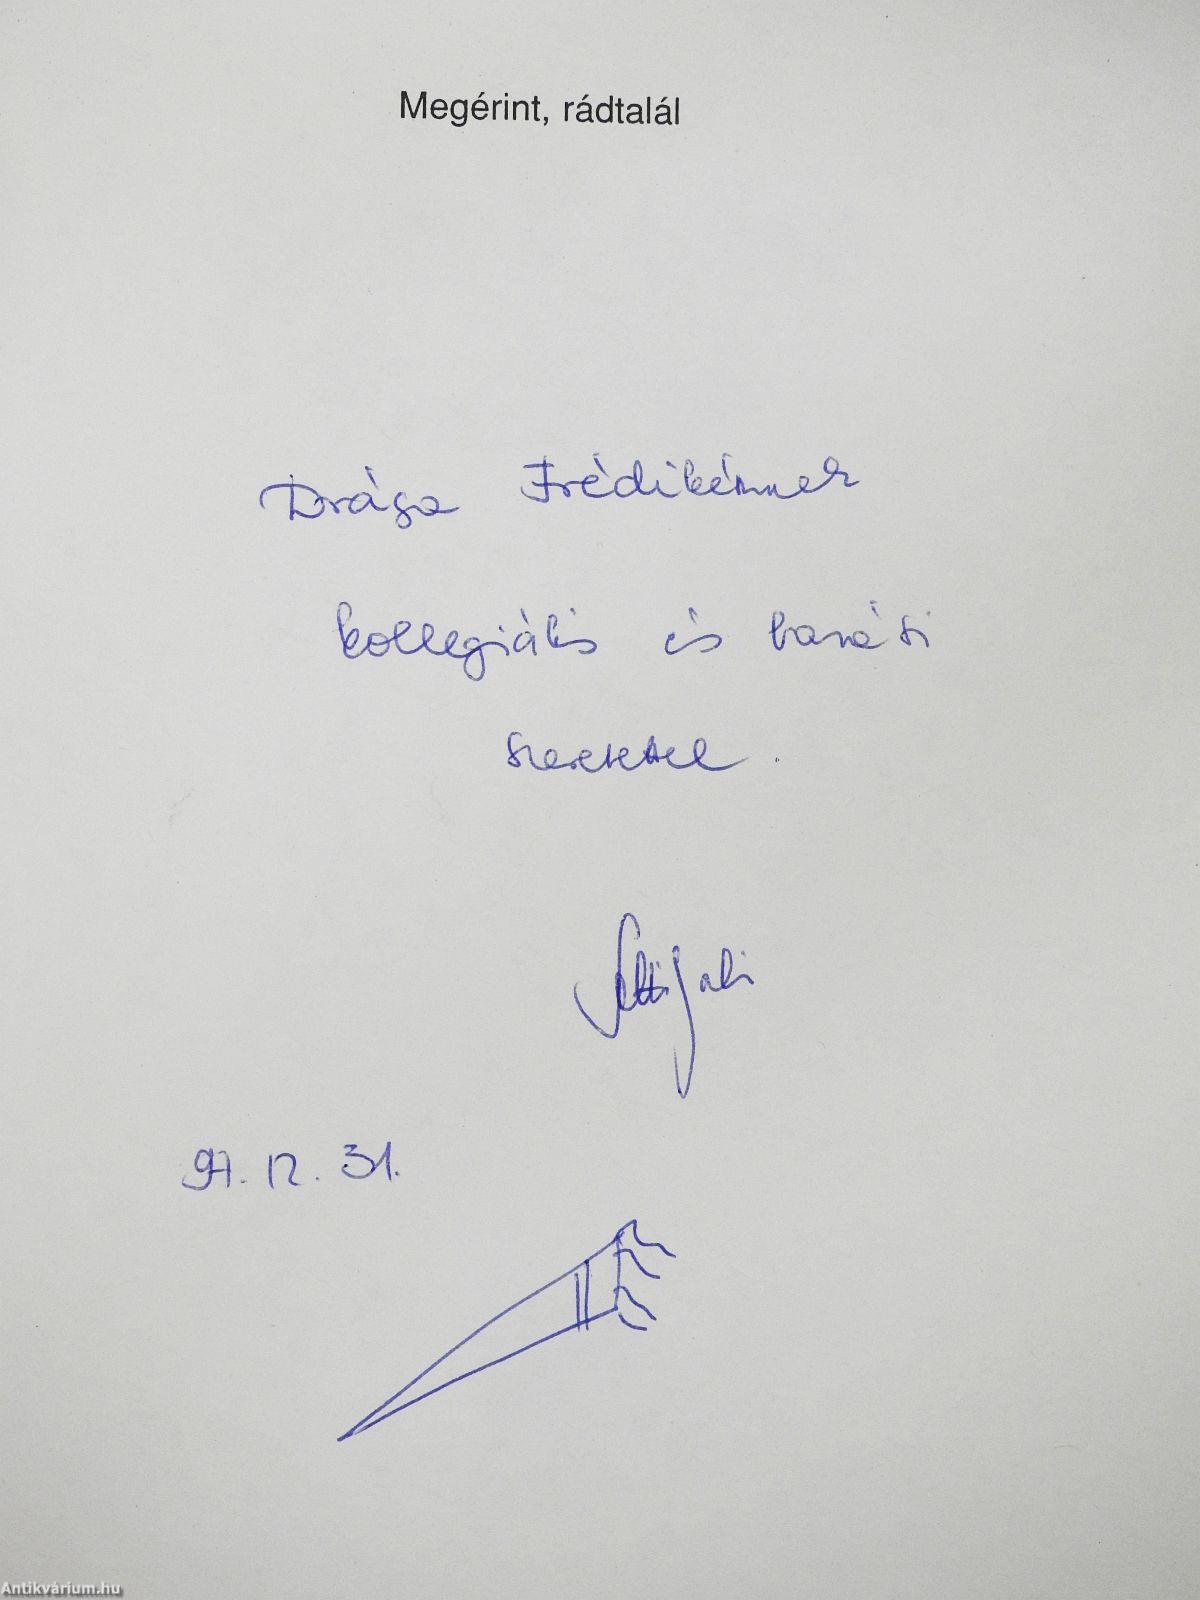 Megérint, rádtalál
Drága Frédikémnek
kollegiális és baráti
szeretettel.
97. 12. 31.
Antikvárium.hu